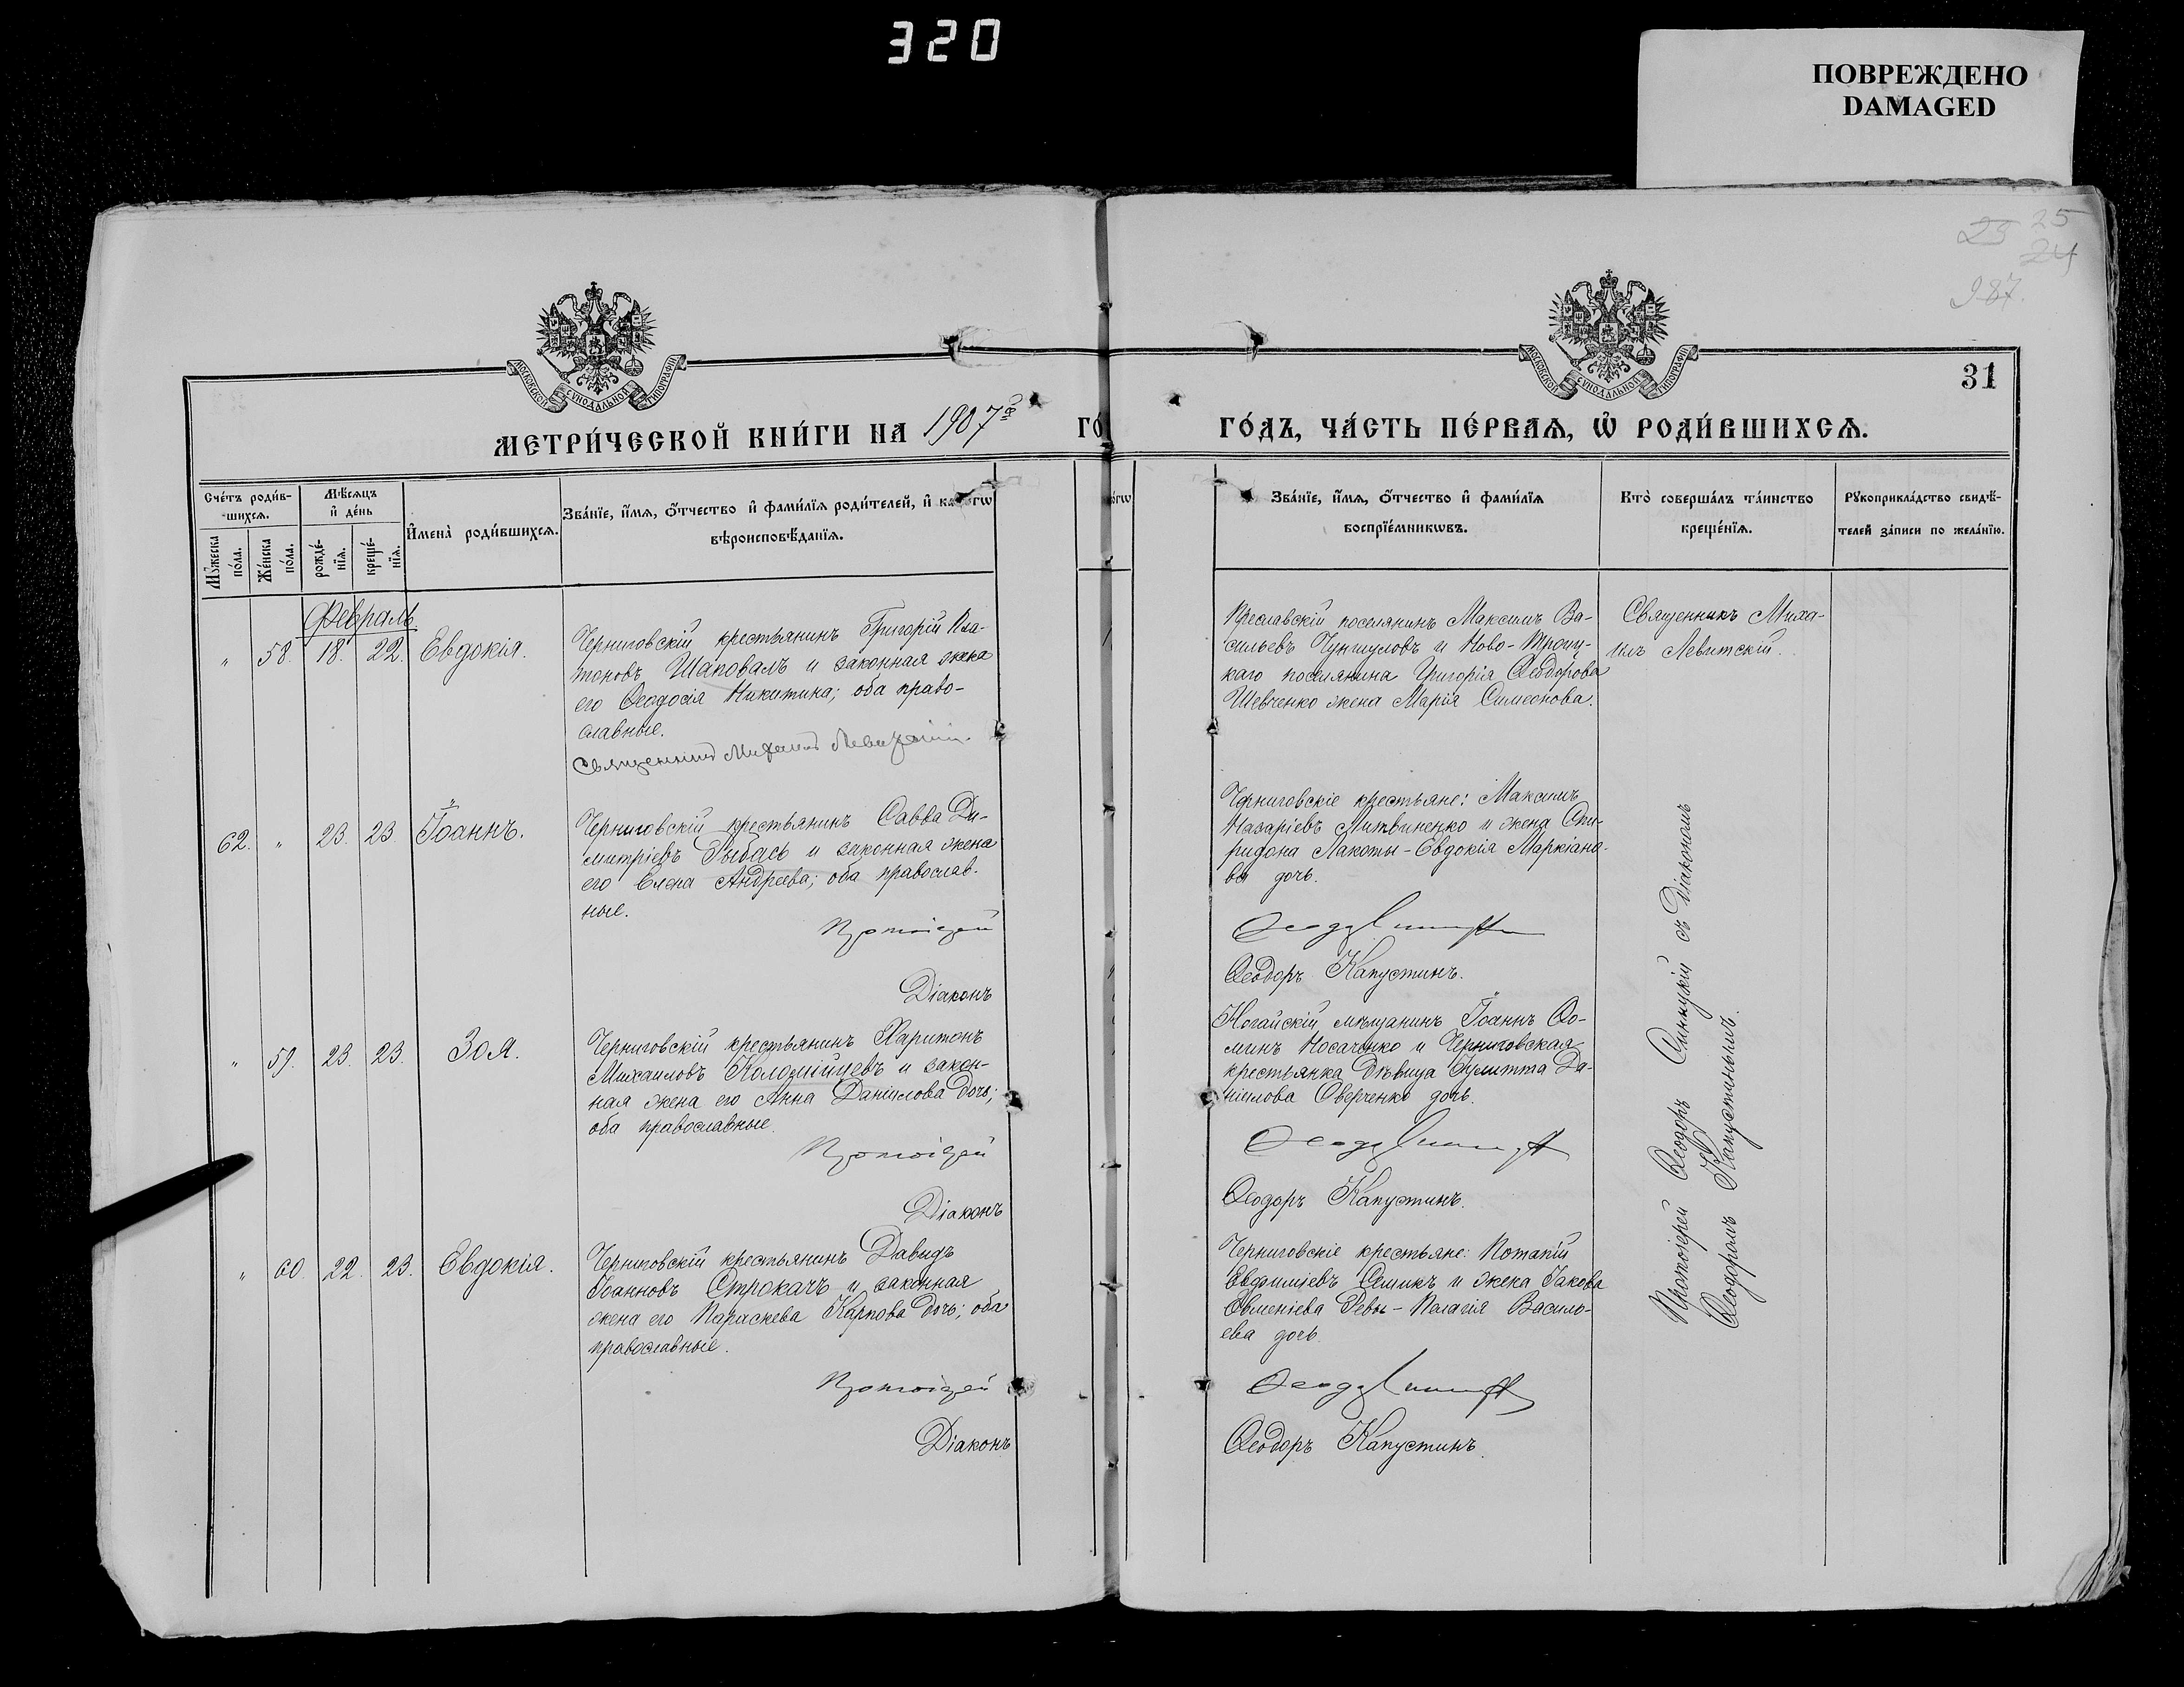 320
ПОВРЕЖДЕНО
DAMAGED
25
23
24
987.
МОСКОВСКОЙ СѴНОДАЛЬНОЙ ТИПОГРАФІИ
МОСКОВСКОЙ СѴНОДАЛЬНОЙ ТИПОГРАФІИ
31
МЕТРИ́ЧЕСКОЙ КНИ́ГИ НА 1907й ГО
ГО́ДЪ, ЧА́СТЬ ПЕ́РВАѦ, Ѡ҆ РОДИ́ВШИХСѦ.
Сче́тъ роди́в-
шихсѧ.
Мꙋ́жеска по́ла.
Же́нска по́ла.
Мѣ́сѧцъ и҆ де́нь
рожде́-нїѧ.
креще́-нїѧ.
И҆мена̀ роди́вшихсѧ.
Зва́нїе, и҆́мѧ, ѻ҆́тчество и҆ фами́лїѧ роди́телей, и҆ како́гѡ
вѣроисповѣ́данїѧ.
о́гѡ
Зва́нїе, и҆́мѧ, ѻ҆́тчество и҆ фами́лїѧ
воспрїе́мникѡвъ.
Кто̀ соверша́лъ та́инство
креще́нїѧ.
Рꙋкоприкла́дство свидѣ́-
телей за́писи по жела́нїю.
Февраль
" 58. 18. 22. Евдокія.
Черниговскій крестьянинъ Григорій Пла-
тоновъ Шаповалъ и законная жена
его Ѳеодосія Никитина; оба право-
славные.
Священникъ Михаилъ Левитскій.
Преславскій поселянинъ Максимъ Ва-
сильевъ Чунгуловъ и Ново-Троиц-
каго поселянина Григорія Ѳеодорова
Шевченко жена Марія Симеонова.
Священникъ Миха-
илъ Левитскій.
62. " 23. 23. Іоаннъ.
Черниговскій крестьянинъ Савва Ди-
митріевъ Рыбась и законная жена
его Елена Андреева; оба православ-
ные.
Протоіерей
Діаконъ
Черниговскіе крестьяне: Максимъ
Назаріевъ Литвиненко и жена Спи-
ридона Лакоты - Евдокія Маркіано-
ва дочь.
Ѳеодоръ Капустинъ.
" 59. 23. 23. Зоя.
Черниговскій крестьянинъ Харитонъ
Михаиловъ Коломійцевъ и закон-
ная жена его Анна Даніилова дочь;
оба православные.
Протоіерей
Діаконъ
Ногайскій мѣщанинъ Іоаннъ Ѳо-
минъ Носаченко и Черниговская
крестьянка дѣвица Іулитта Да-
ніилова Оверченко дочь.
Ѳеодоръ Капустинъ.
" 60. 22. 23. Евдокія.
Черниговскій крестьянинъ Давидъ
Іоанновъ Строкачъ и законная
жена его Параскева Карпова дочь; оба
православные.
Протоіерей
Діаконъ
Черниговскіе крестьяне: Потапій
Евфиміевъ Семикъ и жена Іакова
Евменіева Ревы - Пелагія Василь-
ева дочь.
Ѳеодоръ Капустинъ.
Протоіерей Ѳеодоръ Синицкій съ Діакономъ
Ѳеодоромъ Капустинымъ.